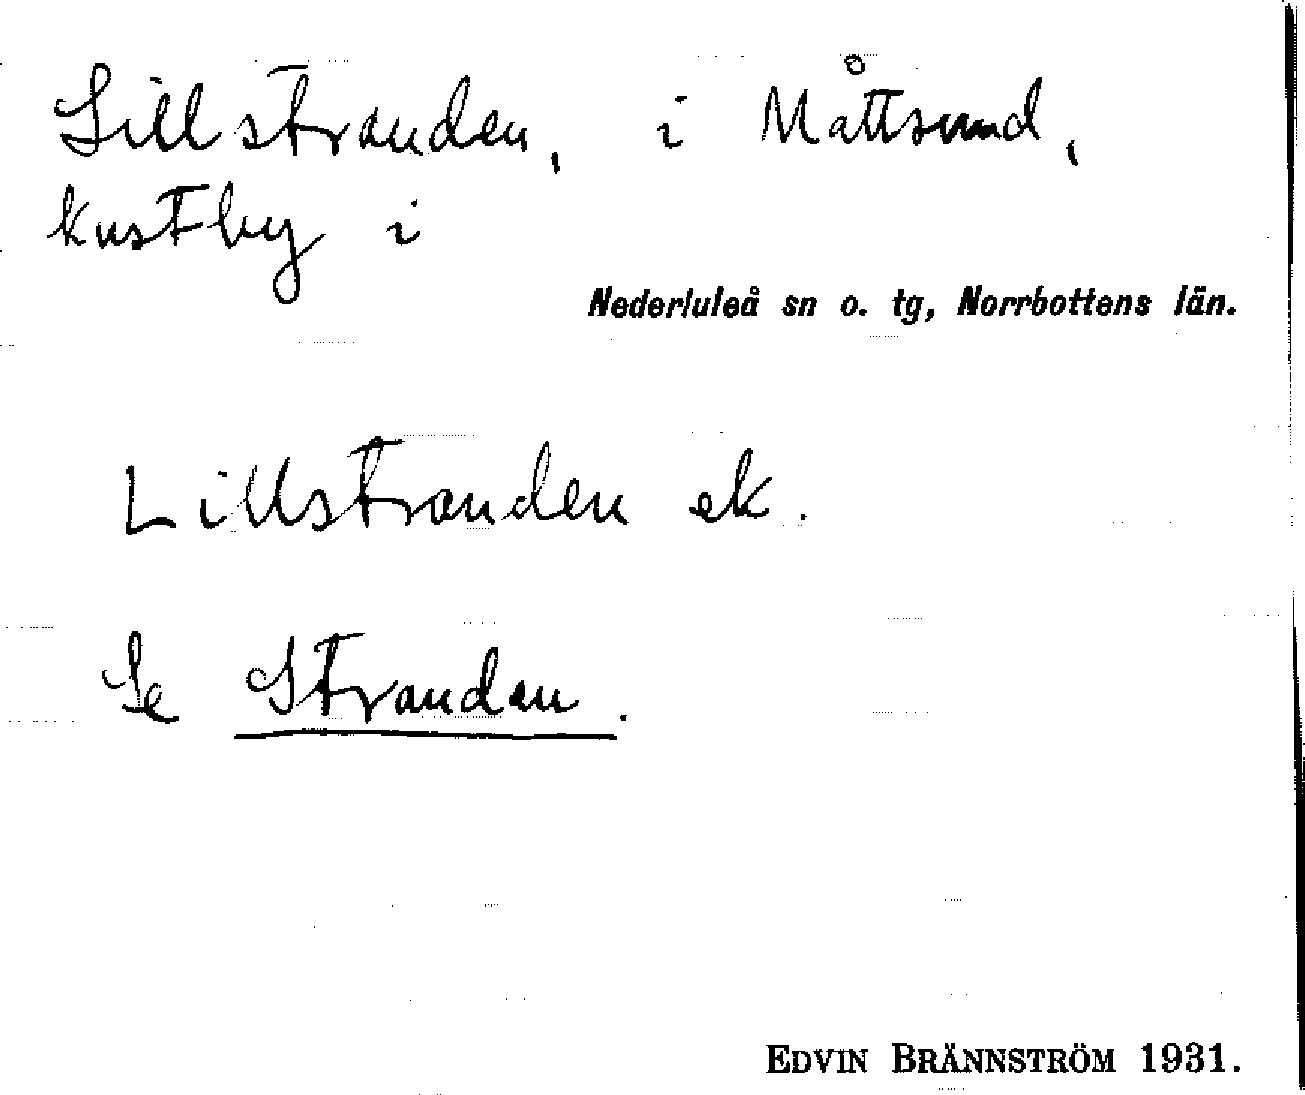 Lillstranden, i Måttsund,
kustby i
Nederluleå sn o. tg, Norrbottens län.
Lillstranden ek.
Se Stranden.
EDVIN BRÄNNSTRÖM 1931.